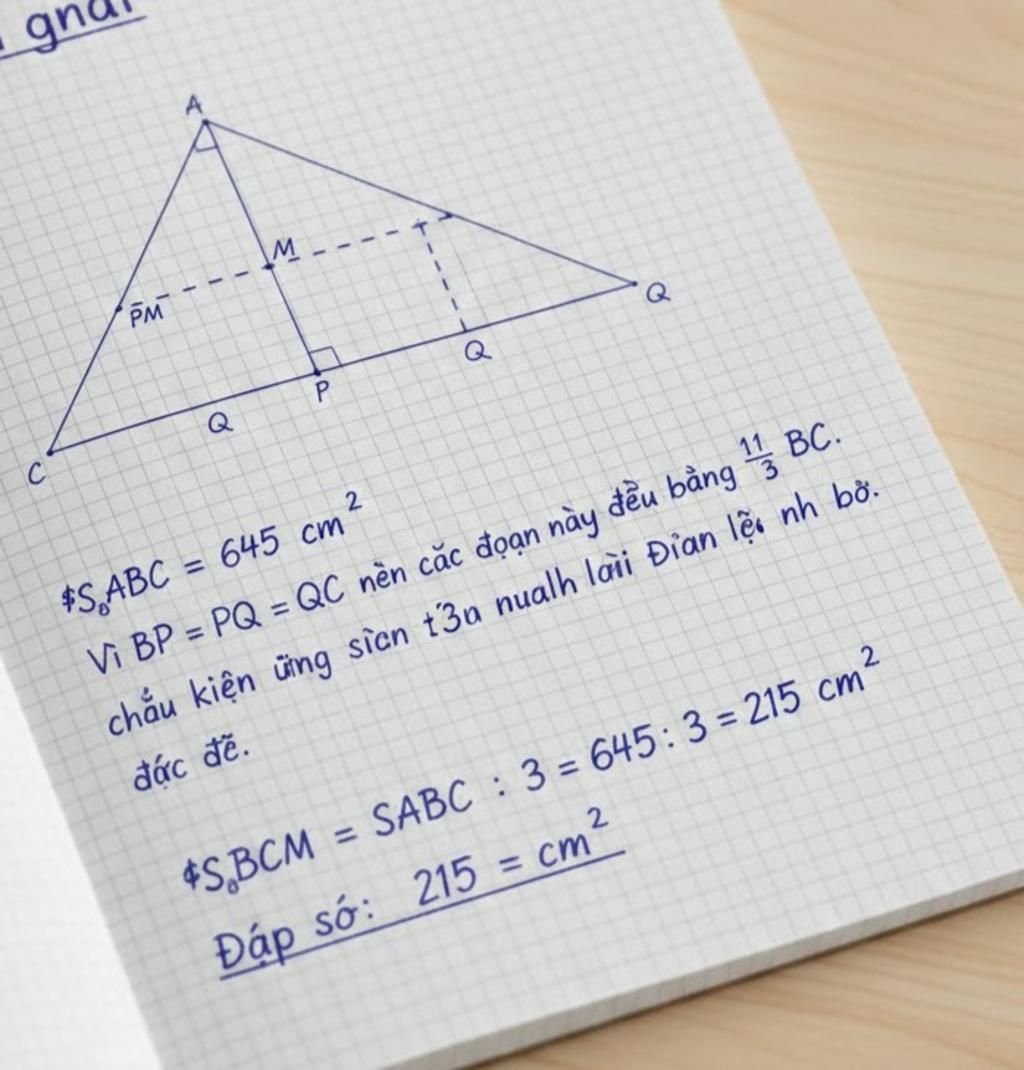 gnai
A
M
PM
Q
Q
P
Q
C
$S₀ABC = 645 cm²
Vì BP = PQ = QC nên các đoạn này đều bằng 11/3 BC.
chẩu kiện ững sìcn t'3a nualh laīi Đian lệi nh bờ.
đớc đẽ.
$S₀BCM = SABC : 3 = 645 : 3 = 215 cm²
Đáp sớ: 215 = cm²